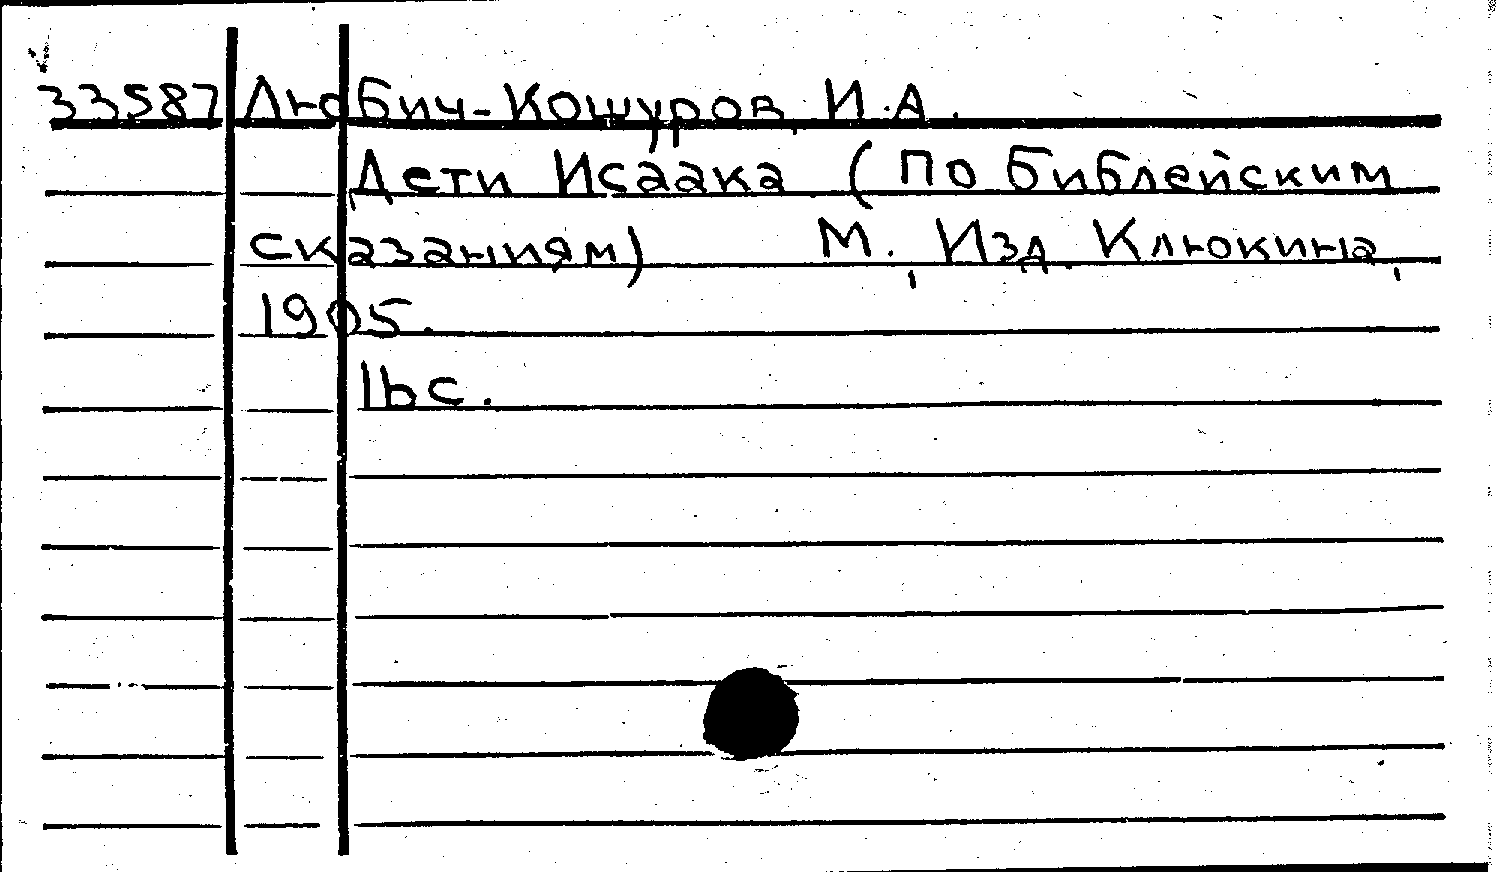 33587 Любич-Кошуров, И.А.
Дети Исаака (По библейским
сказаниям) М., Изд. Клюкина,
1905.
16 с.